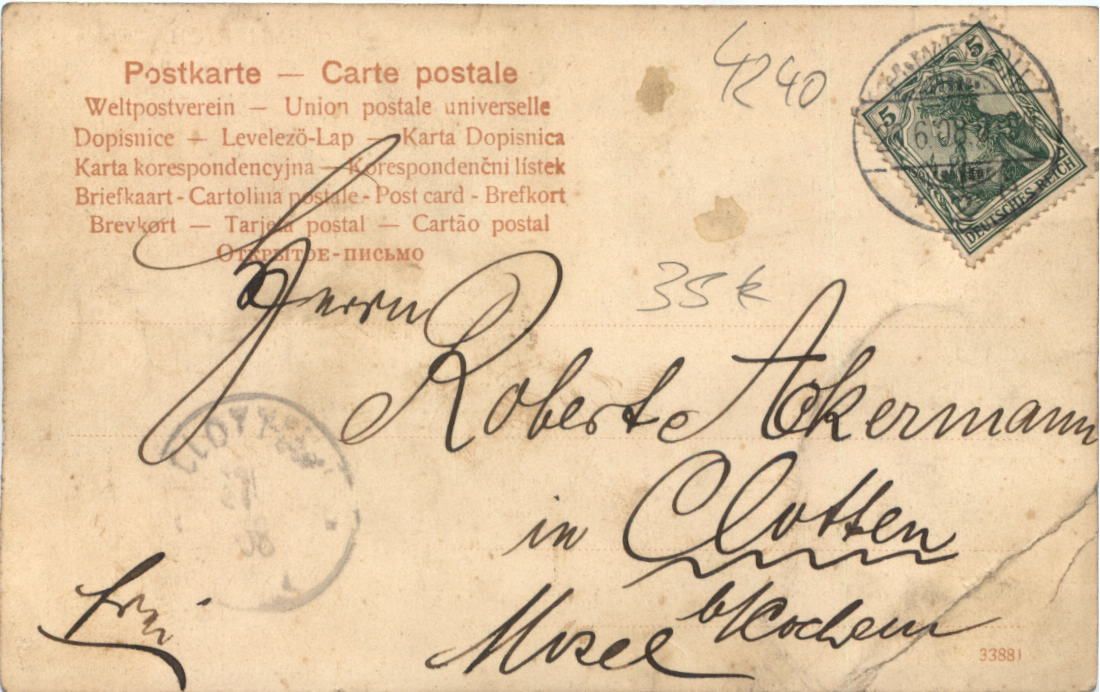 Postkarte — Carte postale
Weltpostverein — Union postale universelle
Dopisnice — Levelező-Lap — Karta Dopisnica
Karta korespondencyjna — Korespondenčni lístek
Briefkaart - Cartolina postale - Post card - Brefkort
Brevkort — Tarjeta postal — Cartão postal
Открытое-письмо
4240
5
5
6 08
DEUTSCHES REICH
35 k
Herrn
Roberte Ackermann
in Clotten
b/Kochem
Mosel
frei
33881